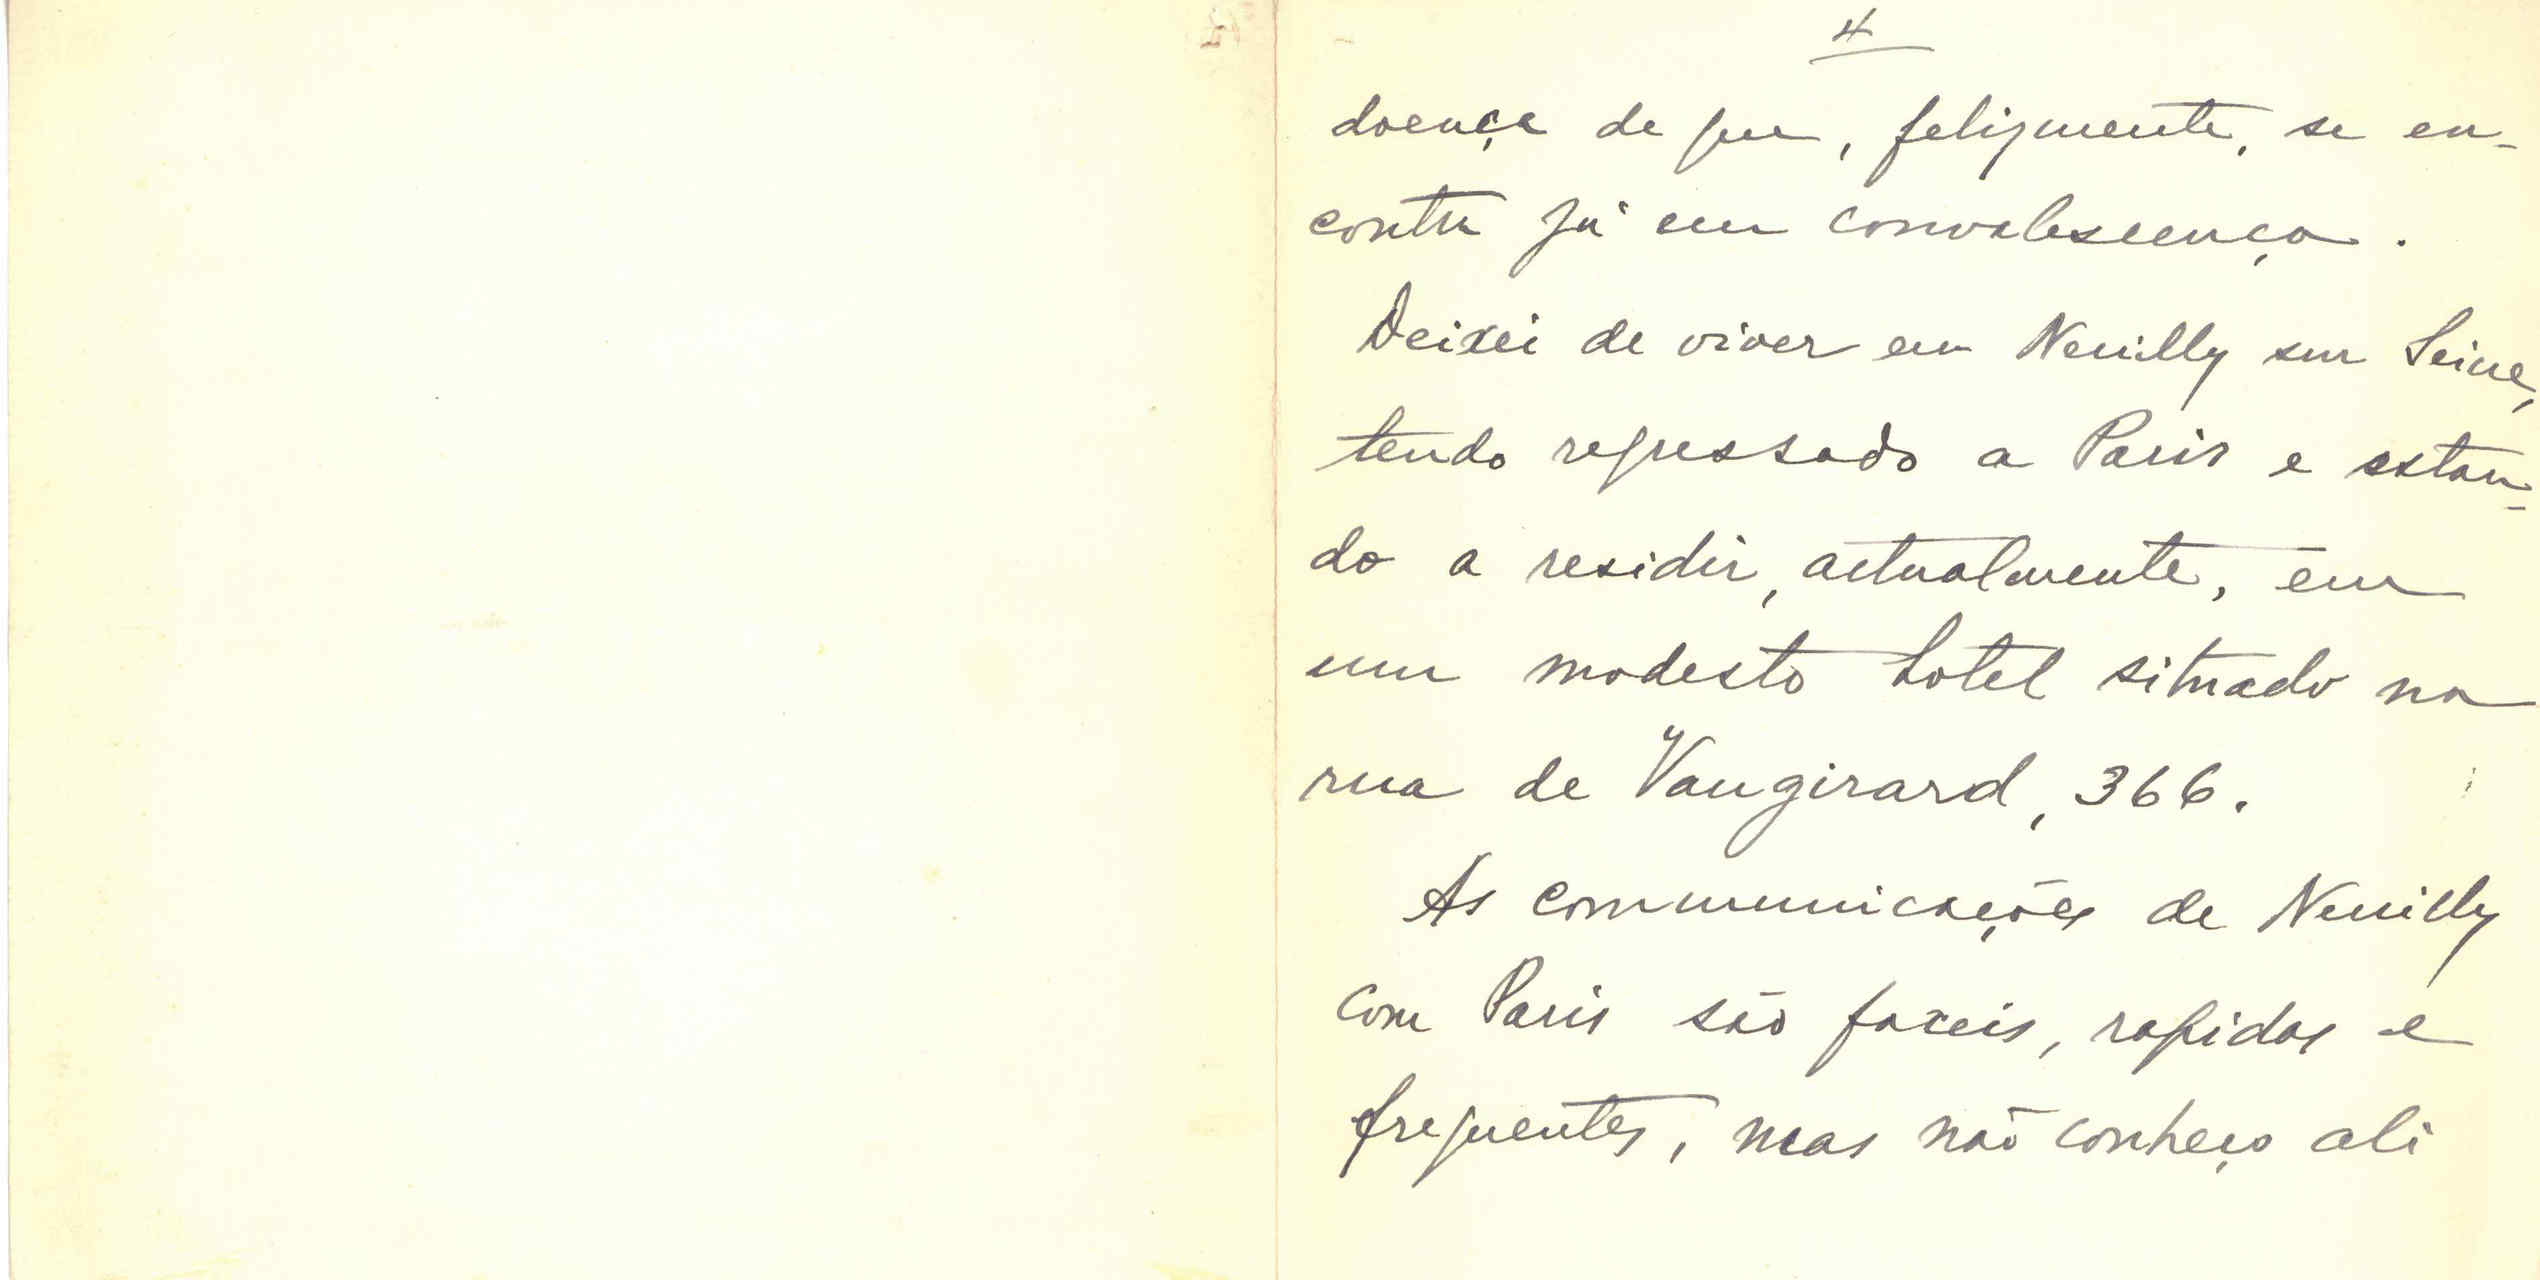 4
doença de que, felizmente, se en-
contra já em convalescença.
Deixei de viver em Neuilly sur Seine,
tendo regressado a Paris e estan-
do a residir, actualmente, em
um modesto hotel situado na
rua de Vaugirard, 366.
As communicações de Neuilly
com Paris são faceis, rapidas e
frequentes, mas não conheço ali